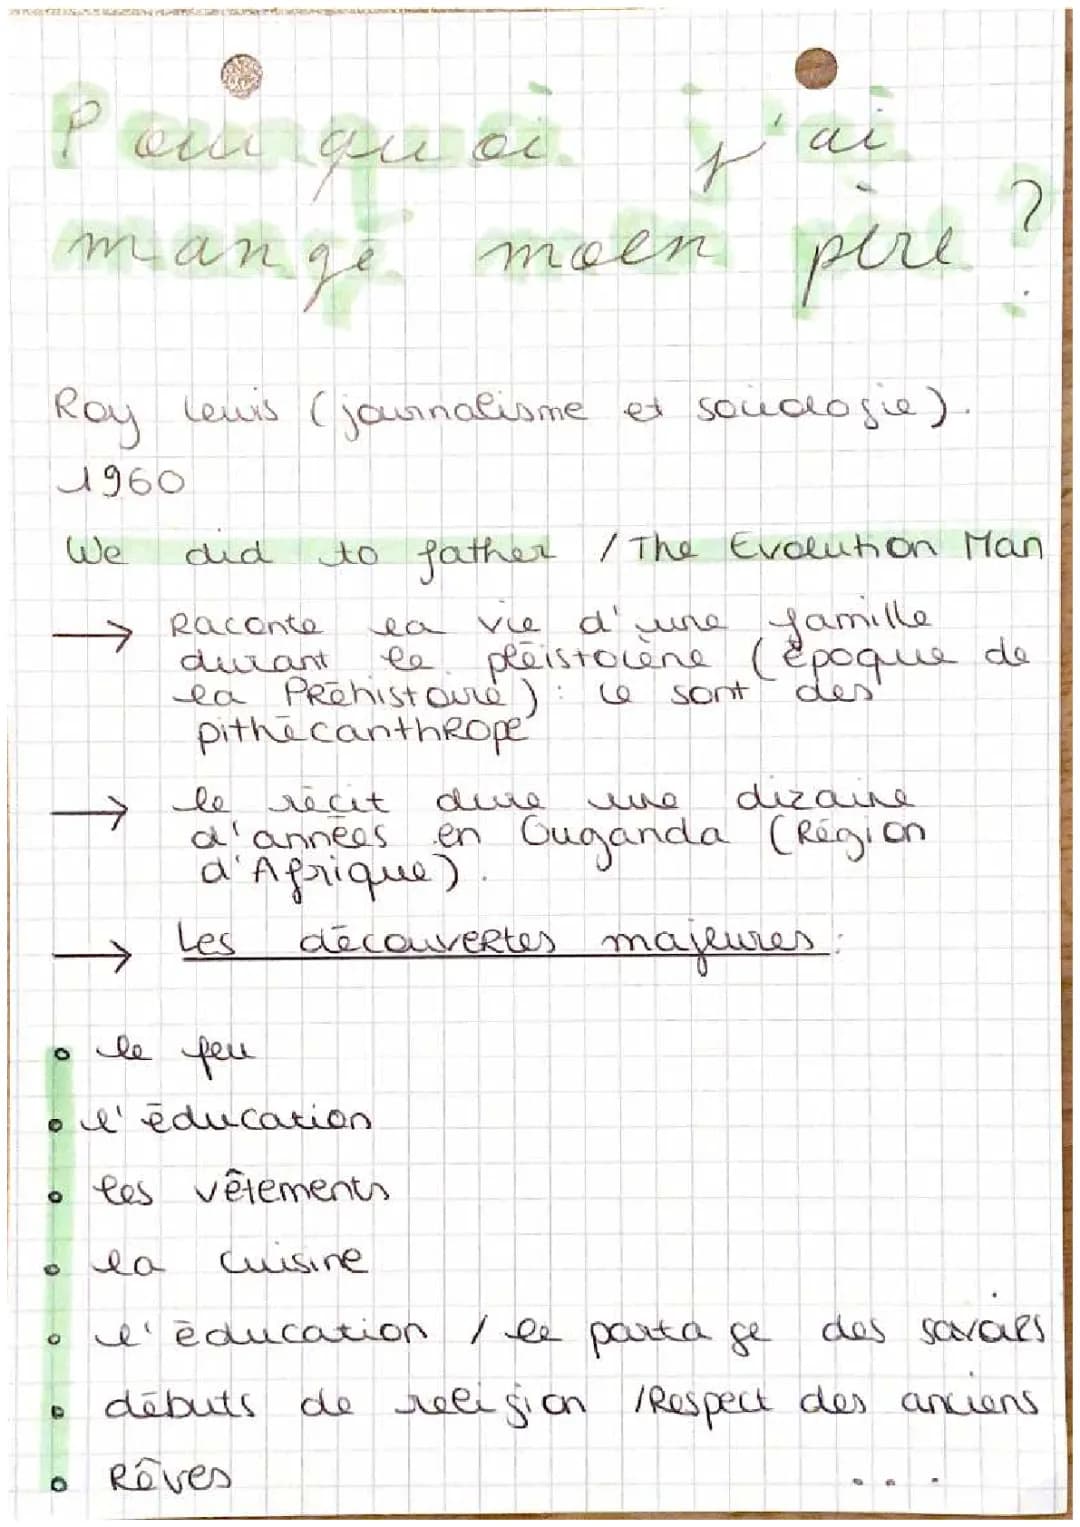 Pourquoi j'ai
mangé moen père ?
Roy Lewis (journalisme et sociologie).
1960
We did to father / The Evolution Man
→ Raconte la vie d'une famille
durant le pléistocène (époque de
la Préhistoire) : ce sont des
pithécanthrope
→ le récit dure une dizaine
d'années en Ouganda (Région
d'Afrique).
→ Les découvertes majeures :
• le feu
• l'éducation
• les vêtements
• la cuisine
• l'éducation / le partage des savoirs
• débuts de religion / Respect des anciens
• Rêves ...